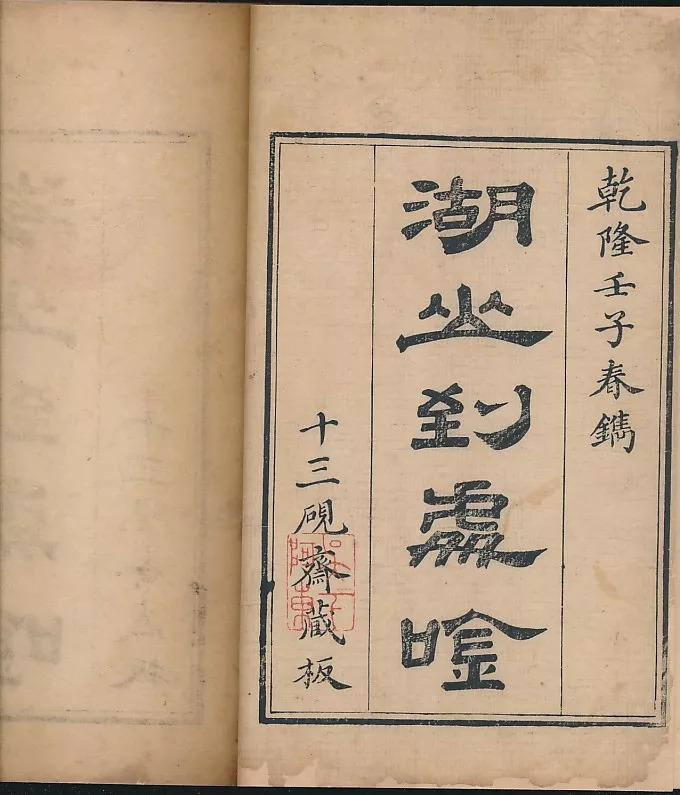 乾隆壬子春鐫
湖山到處唫
十三硯齋藏板